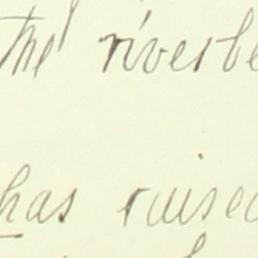 the riverbe
has raised